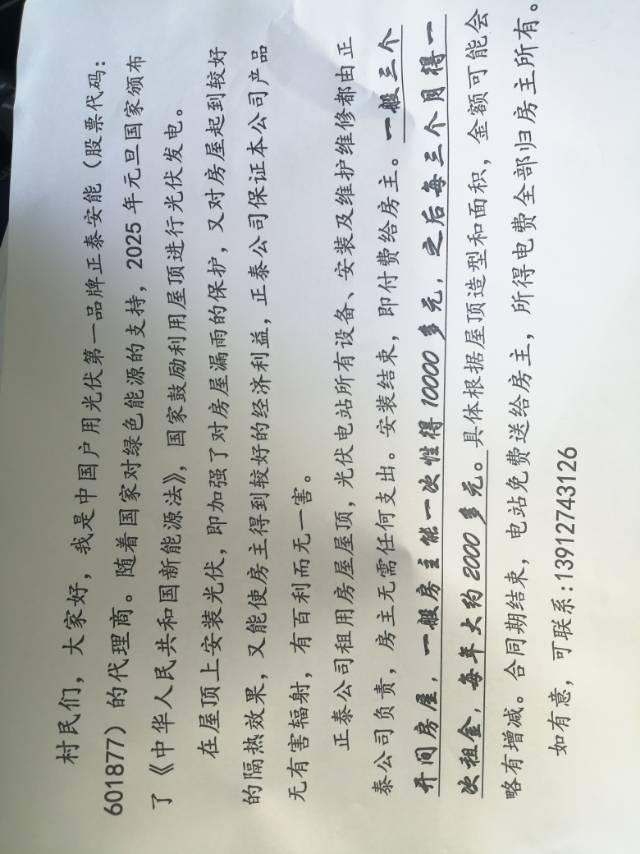 村民们，大家好，我是中国户用光伏第一品牌正泰安能（股票代码：
601877）的代理商。随着国家对绿色能源的支持，2025年元旦国家颁布
了《中华人民共和国新能源法》，国家鼓励利用屋顶进行光伏发电。
在屋顶上安装光伏，即加强了对房屋漏雨的保护，又对房屋起到较好
的隔热效果，又能使房主得到较好的经济利益，正泰公司保证本公司产品
无有害辐射，有百利而无一害。
正泰公司租用房屋屋顶，光伏电站所有设备、安装及维护维修都由正
泰公司负责，房主无需任何支出。安装结束，即付费给房主。一般三个
开间房屋，一般房主能一次性得10000多元，之后每三个月得一
次租金，每年大约2000多元。具体根据屋顶造型和面积，金额可能会
略有增减。合同期结束，电站免费送给房主，所得电费全部归房主所有。
如有意，可联系:13912743126